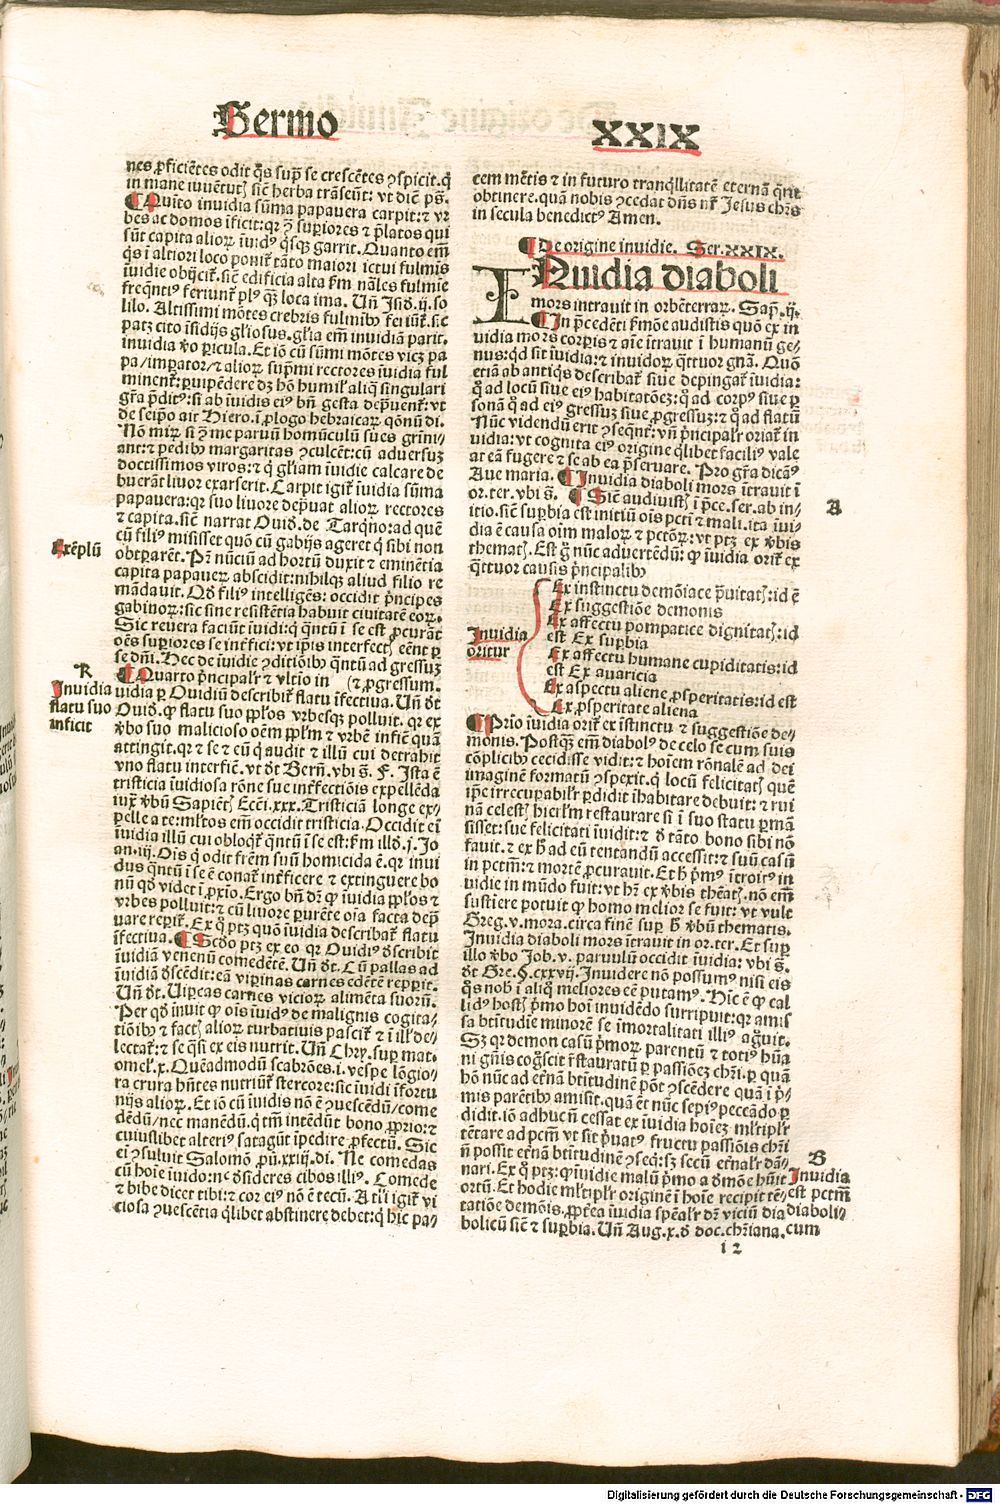 Sermo
XXIX
nes ꝓficiētes odit q̄s suꝑ se crescētes ꝯspicit. q̄
in mane iuuētutꝭ sic̄ herba trāseūt: vt dic̄ ps̄.
¶ Quīto inuidia sūma papauera carpit: ⁊ vr
bes ac domos īficit: qꝛ ꝫ suꝑiores ⁊ p̄latos qui
sūt capita alioꝝ īuidꝰ qͥsqꝫ garrit. Quanto em̄
qͥs ī altiori loco ponit᷑ tāto maiori ictui fulmīs
īuidie obijcit᷑. sic̄ edificia alta ẜm nāles fulmīe
freq̄ntiꝰ feriunt᷑ plꝰ qꝫ loca ima. Vn̄ Isid. ij. so
lilo. Altissimi mōtes crebris fulminibꝰ feriūt᷑. sic
patꝫ cito īsidijs gl̄iosus. gl̄ia em̄ inuidiā parit.
inuidia v̓o ꝑicula. Et iō cū sūmi mōtes vicꝫ pa
pa/imꝑator/⁊ alioꝝ suꝑmi rectores īuidia ful
minent᷑: ꝑuipēdere dꝫ hō humil᷑ aliq̄ singulari
gr̄a p̄ditꝰ: si ab īuidis eiꝰ bn̄ gesta depͣuent᷑: vt
de seip̄o ait Hiero. ī ꝓlogo hebraicaꝝ q̄onū di.
Nō mirꝝ si ꝯ me paruū homūculū sues grūni/
ant: ⁊ pedibꝰ margaritas ꝯculcēt: cū aduersuꝫ
doctissimos viros: ⁊ q̄ gl̄iam īuidie calcare de
buerāt liuor exarserit. Carpit igit᷑ īuidia sūma
papauera: qꝛ suo liuore depͣuat alioꝝ rectores
⁊ capita. sic̄ narrat Ouid. de Tarqͥno: ad quē
cū filiꝰ misisset quō cū gabijs ageret q̄ sibi non
obtꝑarēt. Pr̄ nūciū ad hortū duxit ⁊ eminētia
capita papaueꝝ abscidit: nihilqꝫ aliud filio re
mādauit. Qd̓ filiꝰ intelligēs: occidit pͥncipes
gabinoꝝ: sic sine resistētia habuit ciuitatē eoꝝ.
Sic reuera faciūt īuidi: q̄ qͣntū ī se est ꝓcurāt
oēs suꝑiores se inṫfici: vt ip̄is interfectꝭ eēnt ꝑ
se dn̄i. Hec de īuidie ꝯditiōibꝰ qͣntū ad gressuꝫ
⁊ ꝓgressum.
¶ Quarto pͥncipalr̄ ⁊ vltīo in
uidia ꝑ Ouidiū describit᷑ flatu īfectiua. Vn̄ dt̄
Ouid. ꝙ flatu suo ppl̄os vrbesqꝫ polluit. qꝛ ex
v̓bo suo malicioso oēm ppl̄m ⁊ vrbē inficit quā
attingit. qꝛ ⁊ se ⁊ eū q̄ audit ⁊ illū cui detrahit
vno flatu interficit. vt dt̄ Bern̄. vbi s̄. F. Ista ē
tristicia īuidiosa rōne sue inṫfectiōis expellēda
iuxͣ v̓bū Sapiētꝭ Ecc̄i. xxx. Tristiciā longe ex/
pelle a te: ml̓tos em̄ occidit tristicia. Occidit ei
īuidia illū cui obloqͥt᷑ qͣntū ī se est: ẜm illd̓. j. Jo
an. iij. Oīs q̄ odit fr̄em suū homicida ē. qꝛ inui
dus qͣntū ī se ē conat᷑ inṫficere ⁊ extinguere bo
nū qd̓ videt ī ꝓxīo. Ergo bn̄ dr̄ ꝙ īuidia ppl̄os ⁊
vrbes polluit: ⁊ cū liuore ꝑurēte oīa facta depͣ
uare reꝑit᷑. Ex q̄ ptꝫ quō īuidia describat᷑ flatu
īfectiua. ¶ Scd̓o ptꝫ ex eo. qꝛ Ouidiꝰ d̓scribit
īuidiā venenū comedētē. Vn̄ dt̄. Cū pallas ad
īuidiā d̓scēdit: eā viꝑinas carnes edētē repꝑit.
Vn̄ dt̄. Viꝑeas carnes vicioꝝ alimēta suorū.
Per qd̓ īnuit ꝙ oīs īuidꝰ de malignis cogita/
tiōibꝰ ⁊ factꝭ alioꝝ turbatiuis pascit᷑ ⁊ ī ill̓ de/
lectat᷑: ⁊ se qͣsi ex eis nutrit. Vn̄ Chry. suꝑ mat.
omel. x. Quēadmodū scabrōes. i. vespe lōgio/
ra crura hn̄tes nutriūt᷑ stercore: sic īuidi īfortu
nijs alioꝝ. Et iō cū īuidis nō ē ꝯuescēdū/come
dēdū/nec manēdū. q̄ tm̄ intēdūt bono ꝓprio: ⁊
cuiuslibet alteriꝰ satagūt īpedire ꝓfectū. Sic
ei ꝯsuluit Salomō ꝓū. xxiij. di. Ne comedas
cū hoīe īuido: nec d̓sideres cibos illiꝰ. Comede
⁊ bibe dicet tibi: ⁊ cor eiꝰ nō ē tecū. A tl̓i igit᷑ vi
ciosa ꝯuescētia qͥlibet abstinere debet: q̄ hic pa/
Exēplū
R
Inuidia
flatu suo
inficit
cem mētis ⁊ in futuro tranqͥllitatē eternā q̄rit
obtinere. quā nobis ꝯcedat dn̄s nr̄ Jesus chr̄s
in secula benedictꝰ Amen.
¶ De origine inuidie. Ser. XXIX.
INuidia diaboli
mors intrauit in orbē terraꝝ. Sap. ij.
¶ In p̄cedēti ẜmōe audistis quō ex in
uidia mors corꝑis ⁊ aīe ītrauit ī humanū ge/
nus: qͥd sit īuidia: ⁊ inuidoꝝ qͣttuor gn̄a. Quō
etiā ab antiqͥs describat᷑ siue depingat᷑ īuidia:
qͦ ad locū siue eiꝰ habitatōeꝫ: qͦ ad corpꝰ siue ꝑ
sonā qͦ ad eiꝰ gressuꝫ siue ꝓgressuꝫ: ⁊ qͦ ad flatū
Nūc videndū erit ꝯseqn̄t᷑: vn̄ pͥncipalr̄ oriat᷑ in
uidia: vt cognita eiꝰ origine qͥlibet faciliꝰ vale
at eā fugere ⁊ se ab ea p̄seruare. Pro gr̄a dicāꝰ
Aue maria. ¶ Inuidia diaboli mors ītrauit ī
or. ter. vbi s̄. ¶ Sic̄ audiuistꝭ ī p̄ce. ser. ab in/
itio. sic̄ suꝑbia est initiū oīs pctī ⁊ mali. ita īui/
dia ē causa oīm maloꝝ ⁊ pctōꝝ: vt ptꝫ ex v̓bis
thematꝭ. Est g̊ nūc aduertēdū: ꝙ īuidia orit᷑ ex
qͣttuor causis pͥncipalibꝰ
Inuidia
oritur
Ex instinctu demōiace pͣuitatꝭ: id ē
Ex suggestiōe demonis
Ex affectu pompatice dignitatꝭ: id
est Ex suꝑbia
Ex affectu humane cupiditatis: id
est Ex auaricia
Ex aspectu aliene ꝓsperitatis: id est
Ex ꝓsperitate aliena
¶ Prīo īuidia orit᷑ ex īstinctu ⁊ suggestiōe de/
monis. Postqꝫ em̄ diabolꝰ de celo se cum suis
cōplicibꝰ cecidisse vidit: ⁊ hoīem rōnalē ad dei
imaginē formatū ꝯspexit. q̄ locū felicitatꝭ quē
ip̄e irrecuꝑabilr̄ ꝑdidit īhabitare debuit: ⁊ rui
nā celestꝭ hierl̄m restaurare si ī suo statu ꝑmā
sisset: sue felicitati īuidit: ⁊ d̓ tāto bono sibi nō
fauit. ⁊ ex h̓ ad eū tentandū accessit: ⁊ suū casū
in pctm̄: ⁊ mortē ꝓcurauit. Et h̓ pͥmꝰ ītroitꝰ in
uidie in mūdo fuit: vt hr̄ ex v̓bis theātꝭ. nō em̄
sustinere potuit ꝙ homo melior se fuit: vt vult
Greg. v. mora. circa finē suꝑ h̓ v̓bū thematis.
Inuidia diaboli mors ītrauit in or. ter. Et suꝑ
illo v̓bo Job. v. paruulū occidit īuidia: vbi s̄.
dt̄ Gre. §. cxxvij. Inuidere nō possumꝰ nisi eis
qͦs nob̓ ī aliqͦ meliores eē putamꝰ. Hic ē ꝙ cal
lidꝰ hostꝭ pͥmo hoī inuidēdo surripuit: qꝛ amis
sa btītudīe minorē se īmortalitati illiꝰ agͦuit.
Sꝫ qꝛ demon casū pͥmoꝝ parentū ⁊ totiꝰ hūa
ni gn̄is cogͦscit r̄staturātū ꝑ passiōeꝫ chr̄i. ꝑ quā
hō nūc ad eṫnā btītudinē pōt ꝯscēdere quā ī pͥ/
mis parētibꝰ amisit. quā ēt nūc sepiꝰ peccādo ꝑ
didit. iō adhuc n̄ cessat ex īuidia hoīeꝫ ml̓tiplr̄
tētare ad pctm̄ vt sit pͥuatꝰ fructu passiōis chr̄i
n̄ possit eṫnā btītudinē ꝯseqͥ: sꝫ secū eṫnalr̄ dā/
nari. Ex qͦ ptꝫ: ꝙ īuidie malū pͥmo a d̓mōe huīt
ortū. Et hodie ml̓tiplr̄ originē ī hoīe recipit tē/
tatiōe demōis. ꝓpt̓ea īuidia sp̄ealr̄ dr̄ viciū dia
bolicū sic̄ ⁊ suꝑbia. Vn̄ Aug. x. d̓ doc. chr̄iana.
A
B
Inuidia
est pctm̄
diaboli/
cum
i 2
Digitalisierung gefördert durch die Deutsche Forschungsgemeinschaft - DFG